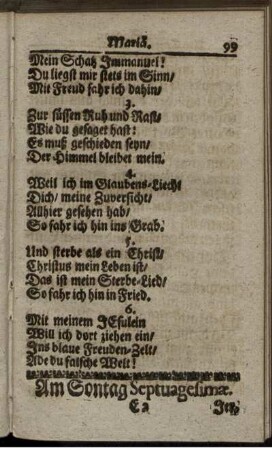 Mariä. 99
Mein Schatz Immanuel!
Du liegst mir stets im Sinn/
Mit Freud fahr ich dahin/
3.
Zur süssen Ruh und Rast/
Wie du gesaget hast:
Es muß geschieden seyn/
Der Himmel bleibet mein.
4.
Weil ich im Glaubens-Liecht
Dich/ meine Zuversicht/
Allhier gesehen hab/
So fahr ich hin ins Grab.
5.
Und sterbe als ein Christ/
Christus mein Leben ist/
Das ist mein Sterbe-Lied/
So fahr ich hin in Fried.
6.
Mit meinem JEsulein
Will ich dort ziehen ein/
Ins blaue Freuden-Zelt/
Ade du falsche Welt!
Am Sontag Septuagesimæ.
E 2